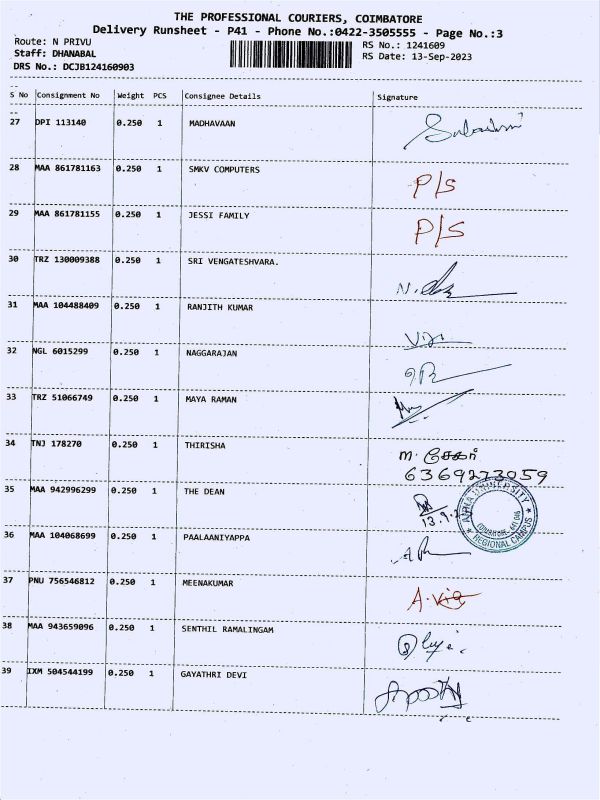 THE PROFESSIONAL COURIERS, COIMBATORE
Delivery Runsheet - P41 - Phone No.:0422-3505555 - Page No.:3
Route: N PRIVU RS No.: 1241609
Staff: DHANABAL RS Date: 13-Sep-2023
DRS No.: DCJB124160903
S No Consignment No Weight PCS Consignee Details Signature
27 DPI 113140 0.250 1 MADHAVAAN
28 MAA 861781163 0.250 1 SMKV COMPUTERS P/S
29 MAA 861781155 0.250 1 JESSI FAMILY P/S
30 TRZ 130009388 0.250 1 SRI VENGATESHVARA.
31 MAA 104488409 0.250 1 RANJITH KUMAR
32 NGL 6015299 0.250 1 NAGGARAJAN
33 TRZ 51066749 0.250 1 MAYA RAMAN
34 TNJ 178270 0.250 1 THIRISHA m. சேகர்
6369273059
35 MAA 942996299 0.250 1 THE DEAN
REGIONAL CAMPUS
36 MAA 104068699 0.250 1 PAALAANIYAPPA
37 PNU 756546812 0.250 1 MEENAKUMAR
38 MAA 943659096 0.250 1 SENTHIL RAMALINGAM
39 IXM 504544199 0.250 1 GAYATHRI DEVI